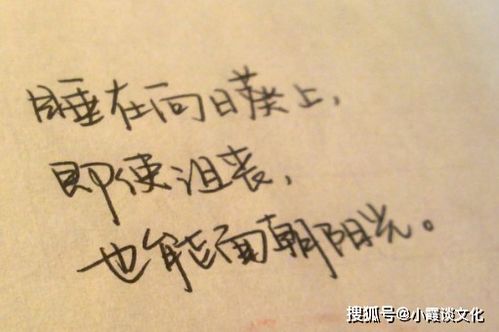 睡在向日葵上，
即使沮丧，
也能面朝阳光。
搜狐号@小霞谈文化